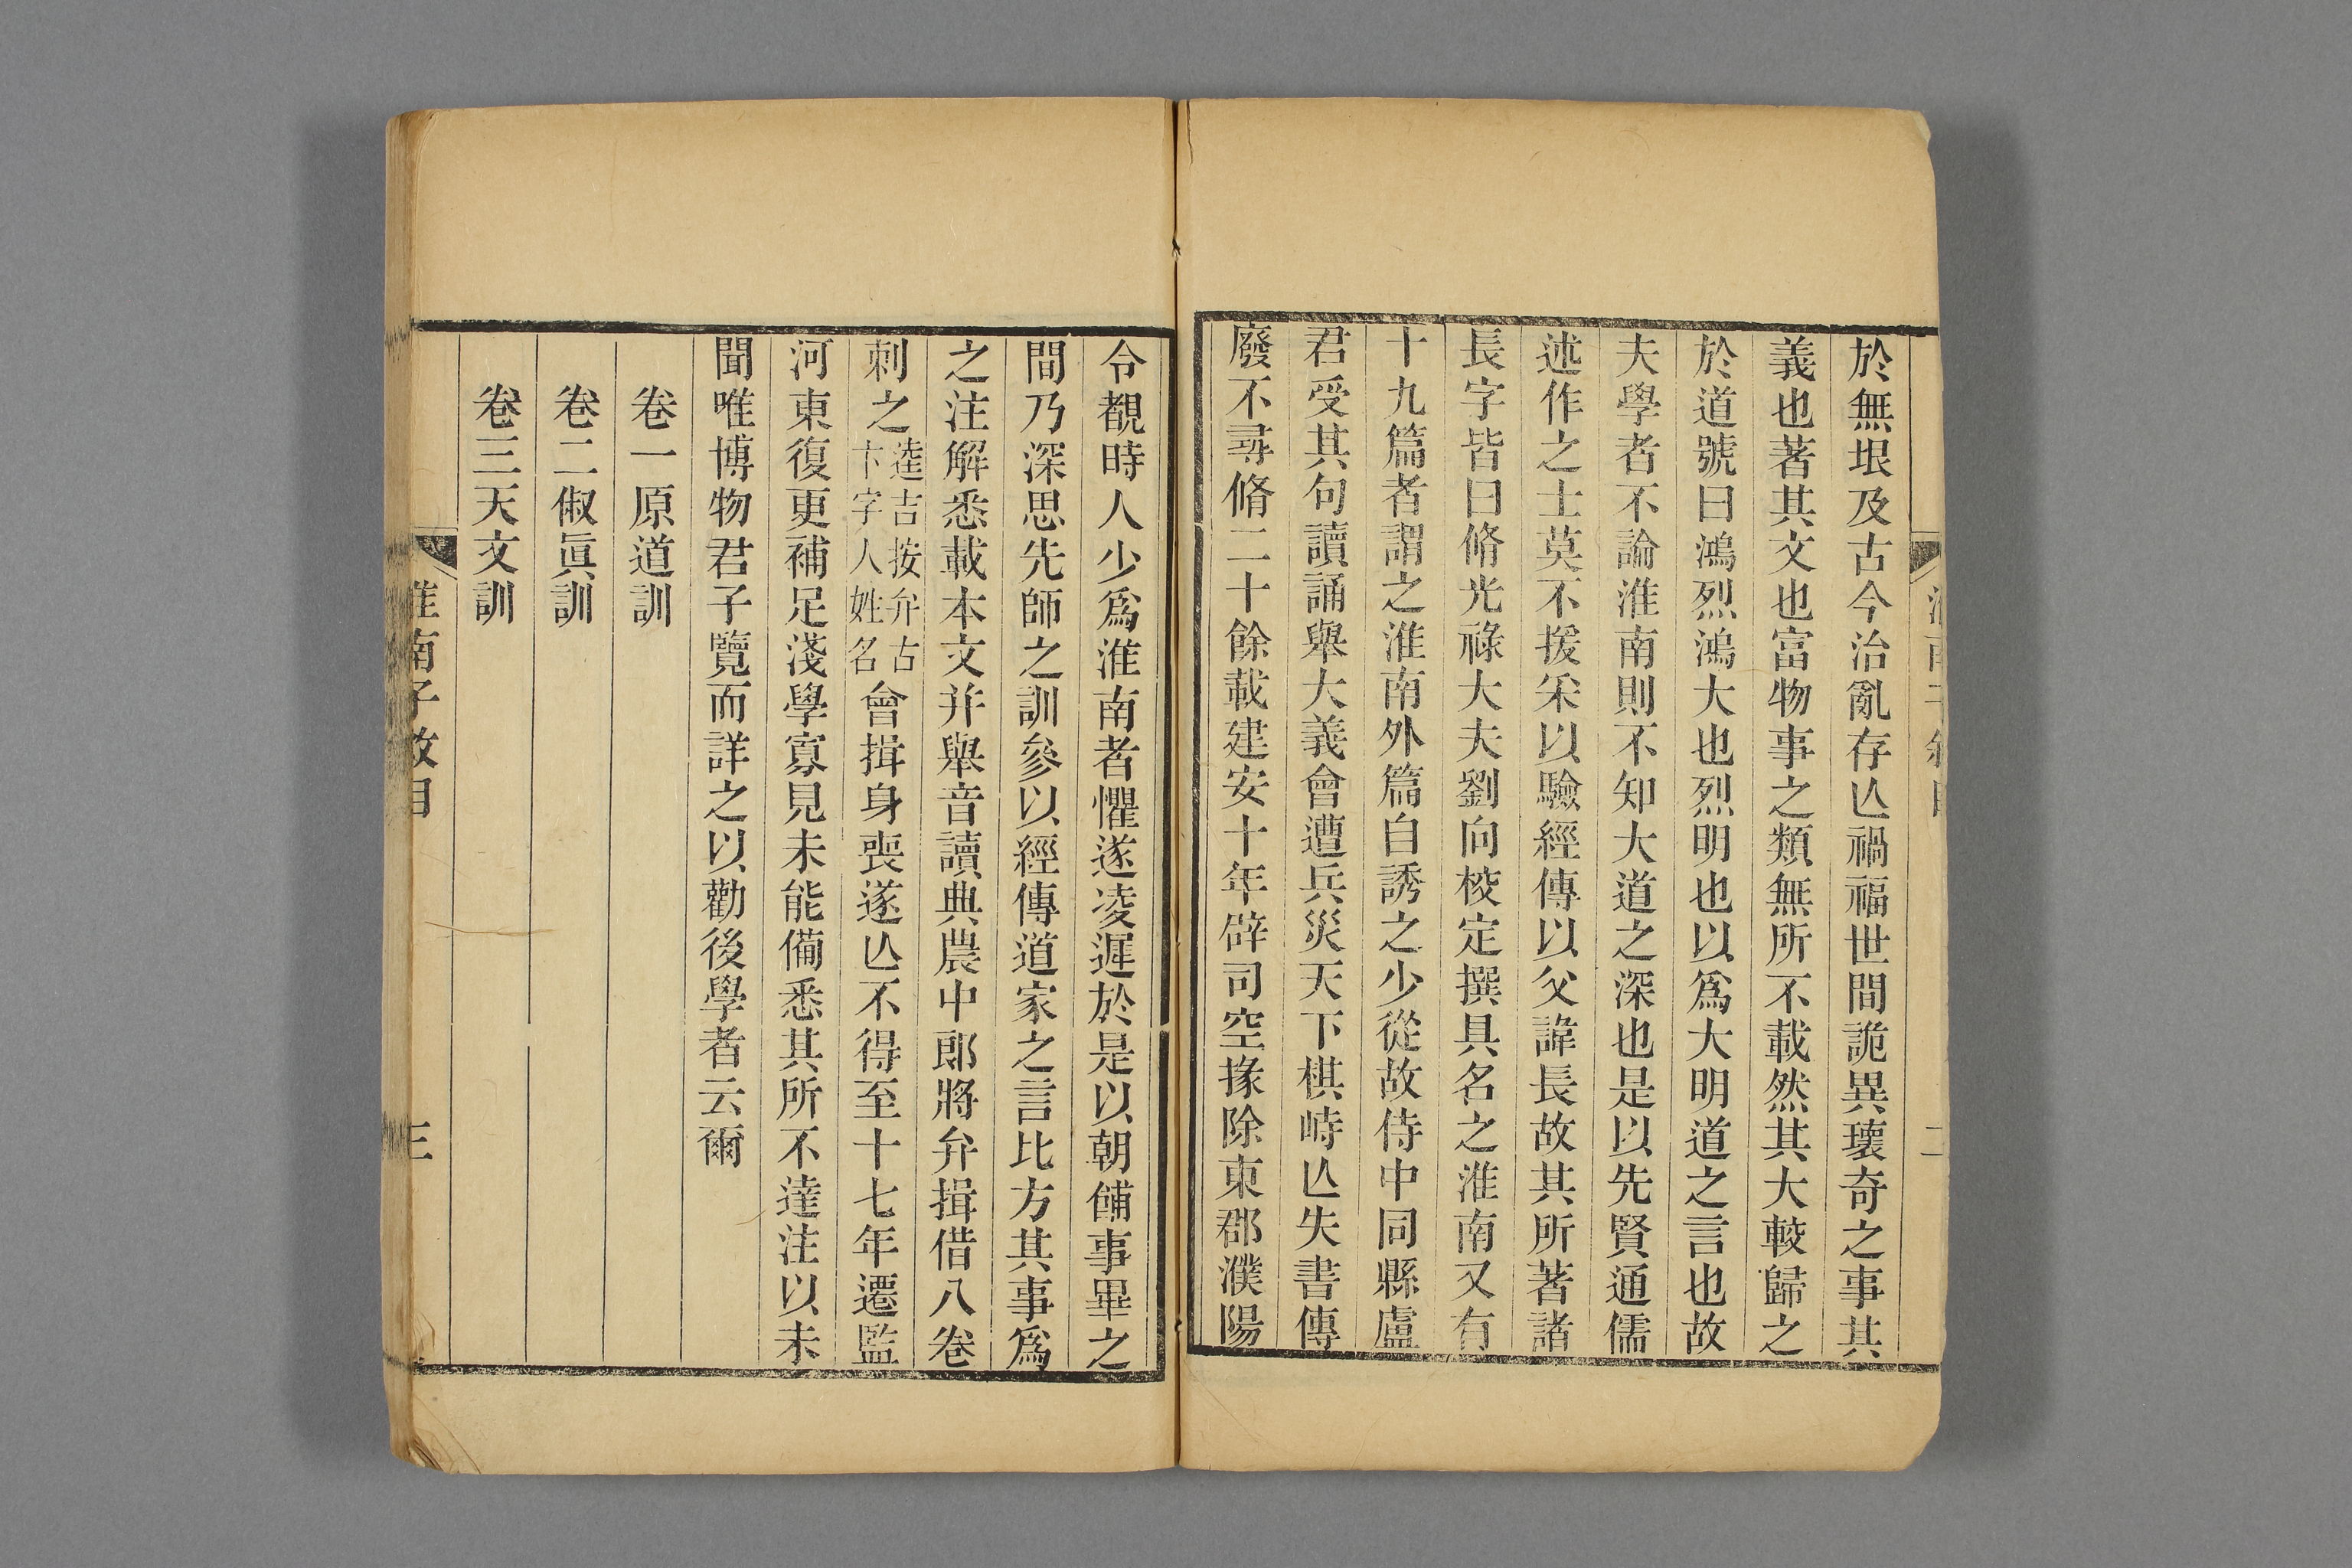 於無垠及古今治亂存亾禍福世間詭異瓌奇之事其
義也著其文也富物事之類無所不載然其大較歸之
於道號曰鴻烈鴻大也烈明也以爲大明道之言也故
夫學者不論淮南則不知大道之深也是以先賢通儒
述作之士莫不援采以驗經傳以父諱長故其所著諸
長字皆曰脩光祿大夫劉向校定撰具名之淮南又有
十九篇者謂之淮南外篇自誘之少從故侍中同縣盧
君受其句讀誦舉大義會遭兵災天下棋峙亾失書傳
廢不尋脩二十餘載建安十年辟司空掾除東郡濮陽
令覩時人少爲淮南者懼遂凌遲於是以朝餔事畢之
間乃深思先師之訓參以經傳道家之言比方其事爲
之注解悉載本文并舉音讀典農中郎將弁揖借八卷
刺之逵吉按弁古卞字人姓名會揖身喪遂亾不得至十七年遷監
河東復更補足淺學寡見未能備悉其所不達注以未
聞唯博物君子覽而詳之以勸後學者云爾
卷一原道訓
卷二俶眞訓
卷三天文訓
淮南子敘目
三